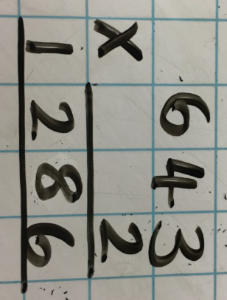 643
× 2
1286